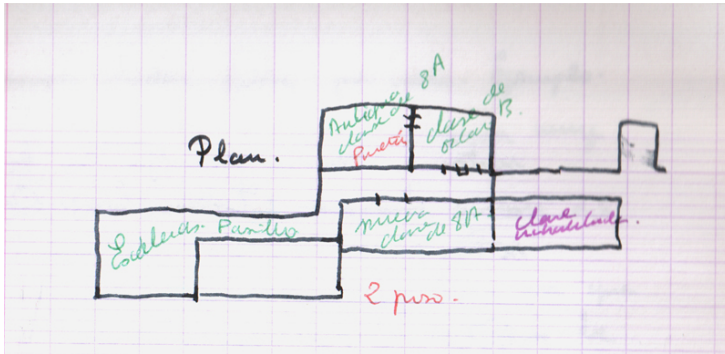 Plan.
Antigua
clase de 8A
Puerta
clase de
B.
Escaleras. Pasillo
nueva
clase
de 8A.
clase
2 piso.